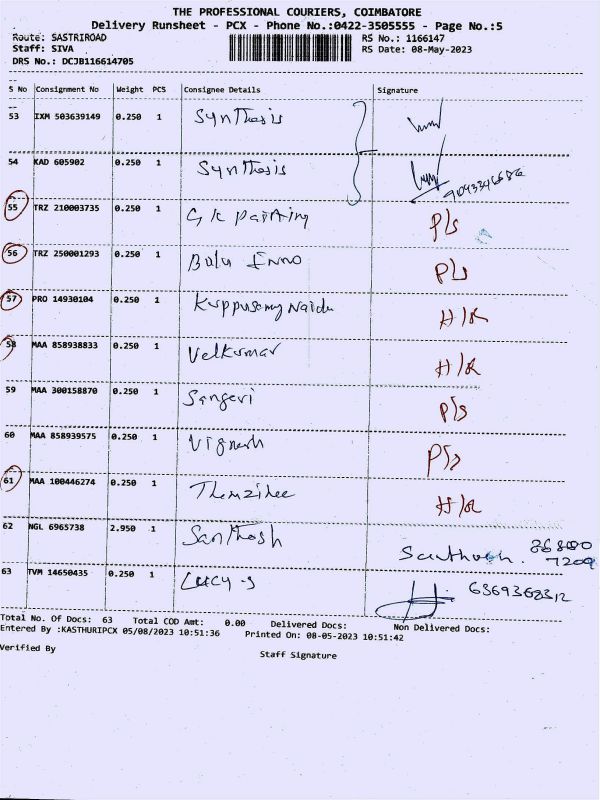 THE PROFESSIONAL COURIERS, COIMBATORE
Delivery Runsheet - PCX - Phone No.:0422-3505555 - Page No.:5
Route: SASTRIROAD RS No.: 1166147
Staff: SIVA RS Date: 08-May-2023
DRS No.: DCJB116614705
S No Consignment No Weight PCS Consignee Details Signature
53 IXM 503639149 0.250 1 Synthesis
54 KAD 605902 0.250 1 Synthesis
9043346686
55 TRZ 210003735 0.250 1 G K Painting P/s
56 TRZ 250001293 0.250 1 Balu Inno P/s
57 PRO 14930104 0.250 1 Kuppusamy Naidu H/R
58 MAA 858938833 0.250 1 Velkumar H/R
59 MAA 300158870 0.250 1 Sangevi P/s
60 MAA 858939575 0.250 1 Vignesh P/s
61 MAA 100446274 0.250 1 H/R
62 NGL 6965738 2.950 1 Santhosh Santhosh.
7209
63 TVM 14650435 0.250 1 Lucy.s
Total No. Of Docs: 63 Total COD Amt: 0.00 Delivered Docs: Non Delivered Docs:
Entered By :KASTHURIPCX 05/08/2023 10:51:36 Printed On: 08-05-2023 10:51:42
Verified By Staff Signature